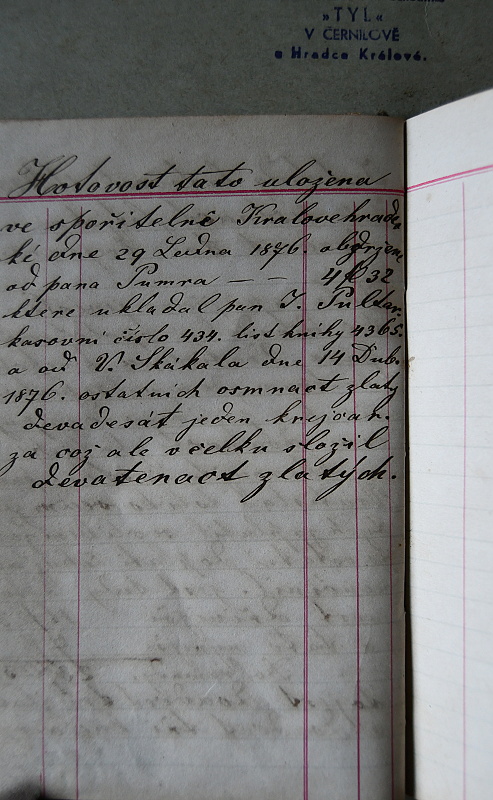 »TYL«
V ČERNILOVĚ
a Hradce Králové.
Hotovost tato uložena
ve spořitelně Kralovehrade
ké dne 29 Ledna 1876. obdržena
od pana Pumra — — 4 f 32
ktere ukladal pan J.
kasovní číslo 434. list knihy 4365.
a od V. Skákala dne 14 Dub.
1876. ostatních osmnact zlatý
devadesát jeden krejcar.
za což ale v celku složil
devatenact zlatých.